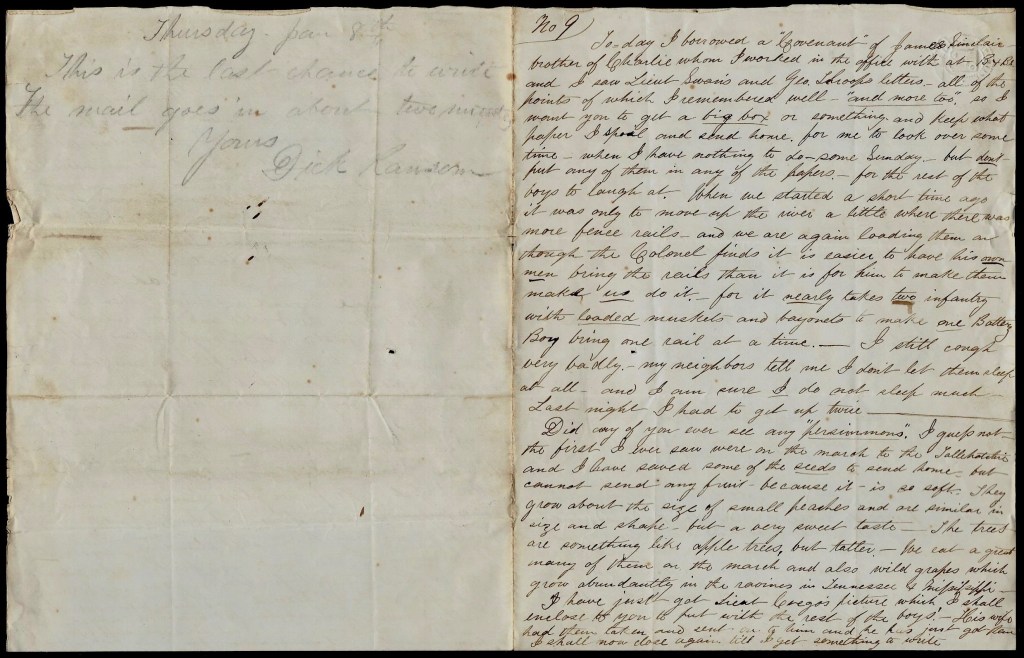 Thursday Jan 8th
This is the last chance to write
The mail goes in about two minutes
Yours
Dick Ransom
No 9
To-day I borrowed a "Covenant" of James Sinclair
brother of Charlie whom I worked in the office with at
and I saw Lieut Swan's and Geo. Throops letters - all of the
points of which I remembered well - "and more too", so I
want you to get a big box or something and keep what
paper I spoil and send home, for me to look over some
time - when I have nothing to do - some Sunday - but dont
put any of them in any of the papers. - for the rest of the
boys to laugh at. When we started a short time ago
it was only to move up the river a little where there was
more fence rails - and we are again loading them on
though the Colonel finds it is easier to have his own
men bring the rails than it is for him to make them
make us do it. - for it nearly takes two infantry
with loaded muskets and bayonets to make one Battery
Boy bring one rail at a time. - I still cough
very badly. - my neighbors tell me I don't let them sleep
at all - and I am sure I do not sleep much -
Last night I had to get up twice
Did any of you ever see any "persimmons". I guess not -
the first I ever saw were on the march to the Tallehatchie
and I have saved some of the seeds to send home - but
cannot send any fruit - because it is so soft. They
grow about the size of small peaches and are similar in
size and shape - but a very sweet taste - The trees
are something like apple trees, but taller. - We eat a great
many of them on the march and also wild grapes which
grow abundantly in the ravines in Tennessee & Mississippi -
I have just got Lieut Crego's picture which I shall
enclose to you to put with the rest of the boys'. - His wife
had them taken and sent on to him and he has just got them
I shall now close again till I get something to write